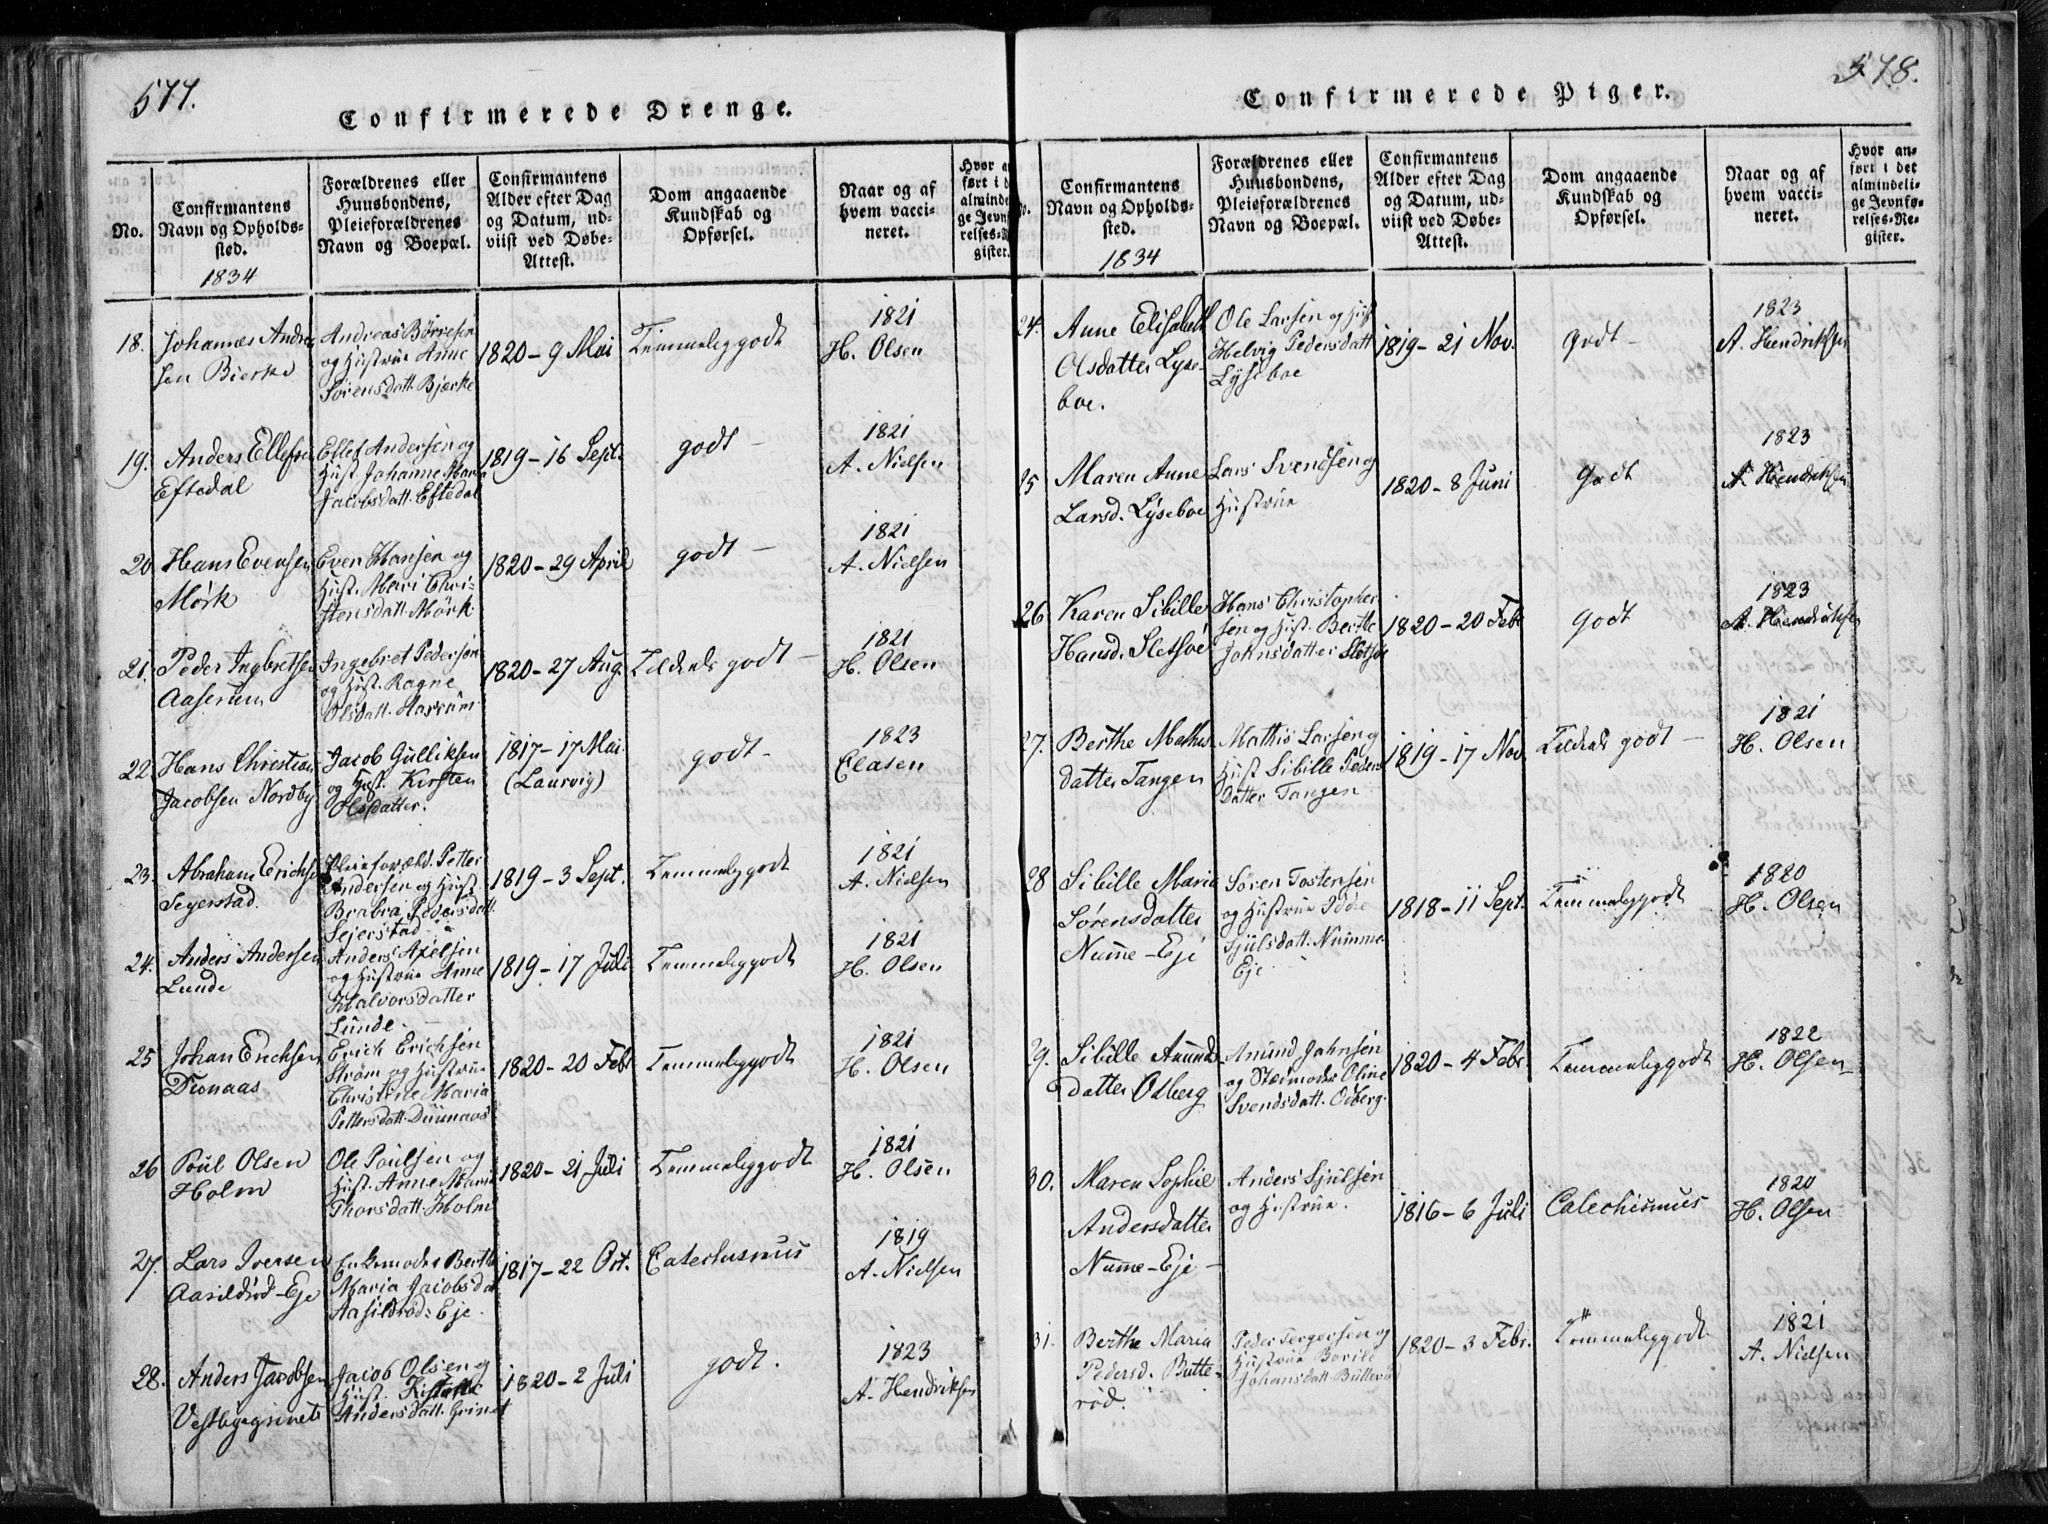 577.
Confirmerede Drenge.
No.
Confirmantens
Navn og Opholds-
sted.
1834
Forældrenes eller
Huusbondens,
Pleieforældrenes
Navn og Boepæl.
Confirmantens
Alder efter Dag
og Datum, ud-
viist ved Døbe-
Attest.
Dom angaaende
Kundskab og
Opførsel.
Naar og af
hvem vacci-
neret.
Hvor an
ført i d
alminde
ge Jevnf
relses-R
gister.
18.
Johannes Andre
sen Bierke
Andreas Börresen
og Hustrue Anne
Sörensdatt. Bjerke
1820-9 Mai
Temmeliggodt
1821
H. Olsen
19.
Anders Ellefsen
Eftedal
Ellef Andersen og
Hust. Johanne Maria
Jacobsdatt. Eftedal
1819-16 Sept.
godt -
1821
A. Nielsen
20
Hans Evensen
Mörk
Even Hansen og
Hust. Mari Chri-
stensdatt. Mörk
1820-29 April
godt -
1821
A. Nielsen
21.
Peder Ingbretsen
Aaserum
Ingebret Pedersen
og Hust. Ragne
Olsdatt. Aaserum
1820-27 Aug.
Tildeels godt -
1821
H. Olsen
22
Hans Christian
Jacobsen Nordby
Jacob Gulliksen
og Hust. Kirsten
Olsdatter.
1817-17 Mai
(Laurvig)
godt -
1823
Clasen
23.
Abraham Erichse
Segerstad.
Pleieforæld. Petter
Andersen og Hust.
Brabra Pedersdatt.
Sejerstad
1819-3 Sept.
Temmeliggodt
1821
A. Nielsen
24.
Anders Andersen
Lunde
Anders Axelsen
og Hustrue Anne
Halvorsdatter
Lunde.
1819-17 Juli
Temmeliggodt
1821
H. Olsen
25
Johan Erichsen
Duenaas
Erich Erichsen
Ström og Hustrue
Christine Maria
Pettersdatt. Duunaas
1820-20 Febr
Temmeliggodt
1821
H. Olsen
26
Poul Olsen
Holm
Ole Poulsen og
Hust. Anne Maria
Thorsdatt. Holm
1820-21 Juli
Temmeliggodt
1821
H. Olsen
27.
Lars Iversen
Aasildröd-Eje
Enkemoder Berthe
Maria Jacobsdat
Aasildröd-Eje.
1817-22 Oct.
Catechismus
1819
A. Nielsen
28.
Anders Jacobsen
Vestbyegrinet
Jacob Olsen og
Hust.
Andersdatt. Grinet
1820-2 Juli
godt.
1823
A. Hendriksen
578.
Confirmerede Piger.
Confirmantens
Navn og Opholds-
sted.
1834
Forældrenes eller
Huusbondens,
Pleieforældrenes
Navn og Boepæl.
Confirmantens
Alder efter Dag
og Datum, ud-
viist ved Døbe-
Attest.
Dom angaaende
Kundskab og
Opførsel.
Naar og af
hvem vacci-
neret.
Hvor an-
ført i det
almindeli-
ge Jevnfø-
relses-Re-
gister.
24.
Anne Elisabeth
Olsdatter Lyse-
boe.
Ole Larsen og Hust
Helvig Pedersdatt
Lyseboe
1819-21 Nov.
godt -
1823
A. Hendriksen
25
Maren Anne
Larsd. Lyseboe
Lars Svendsen og
Hustrue
1820-8 Juni
godt
1823
A. Hendriksen
26
Karen Sibille
Hansd. Sletsöe
Hans Christopher
sen og Hust. Berthe
Johnsdatter Sletsöe
1820-20 Febr
godt
1823
A. Hendriksen
27.
Berthe Mathis
datter Tangen
Mathis Larsen og
Hust Sibille Peders
Datter Tangen
1819-17 Nov.
Tildeels godt -
1821
H. Olsen
28
Sibille Maria
Sørensdatter
Numme-Eje
Sören Tostensen
og Hustrue Idde
Sjulsdatt. Numme-
Eje
1818-11 Sept.
Temmeliggodt
1820
H. Olsen
29.
Sibille Amunds
datter Odberg
Amund Jahnsen
og Stedmoder Oline
Svendsdatt. Odberg.
1820-4 Febr.
Temmeliggodt
1822
H. Olsen
30.
Maren Sophie
Andersdatter
Numme-Eje -
Anders Sjulsen
og Hustrue.
1816-6 Juli
Catechismus
1820
H. Olsen
31.
Berthe Maria
Pedersd. Butte-
röd.
Peder Tergersen og
Hustrue Borild
Johansdatt. Butteröd
1820-3 Febr.
Temmeliggodt.
1821
A. Nielsen